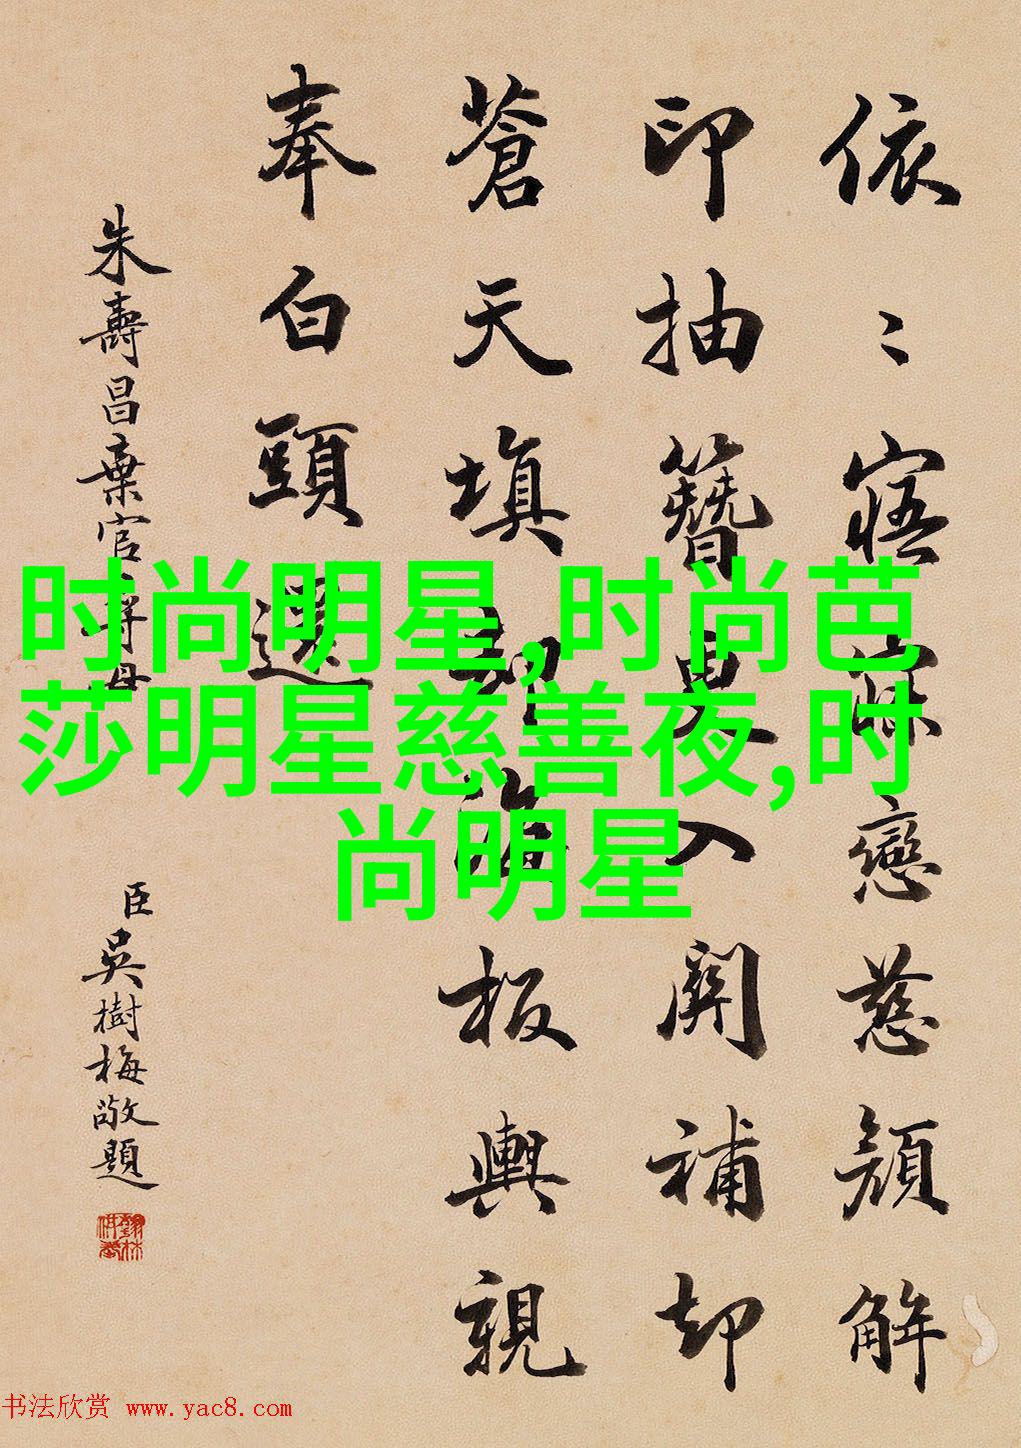 依〻寤寐戀慈顏解
印抽簪更入關補却
蒼天填却海板輿親
奉白頭還
朱壽昌棄官尋母
臣吳樹梅敬題
时尚明星,时尚芭
莎明星慈善夜,时
尚明星
书法欣赏 www.yac8.com